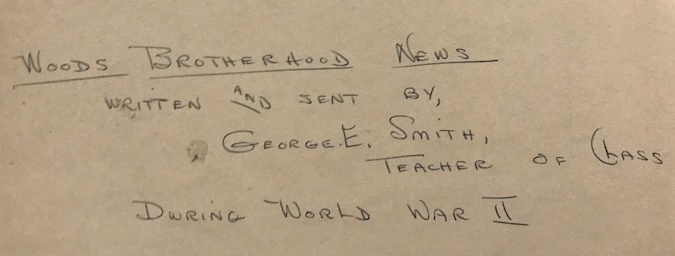 Woods Brotherhood News
written and sent by,
George.E. Smith,
Teacher of Class
During World War II